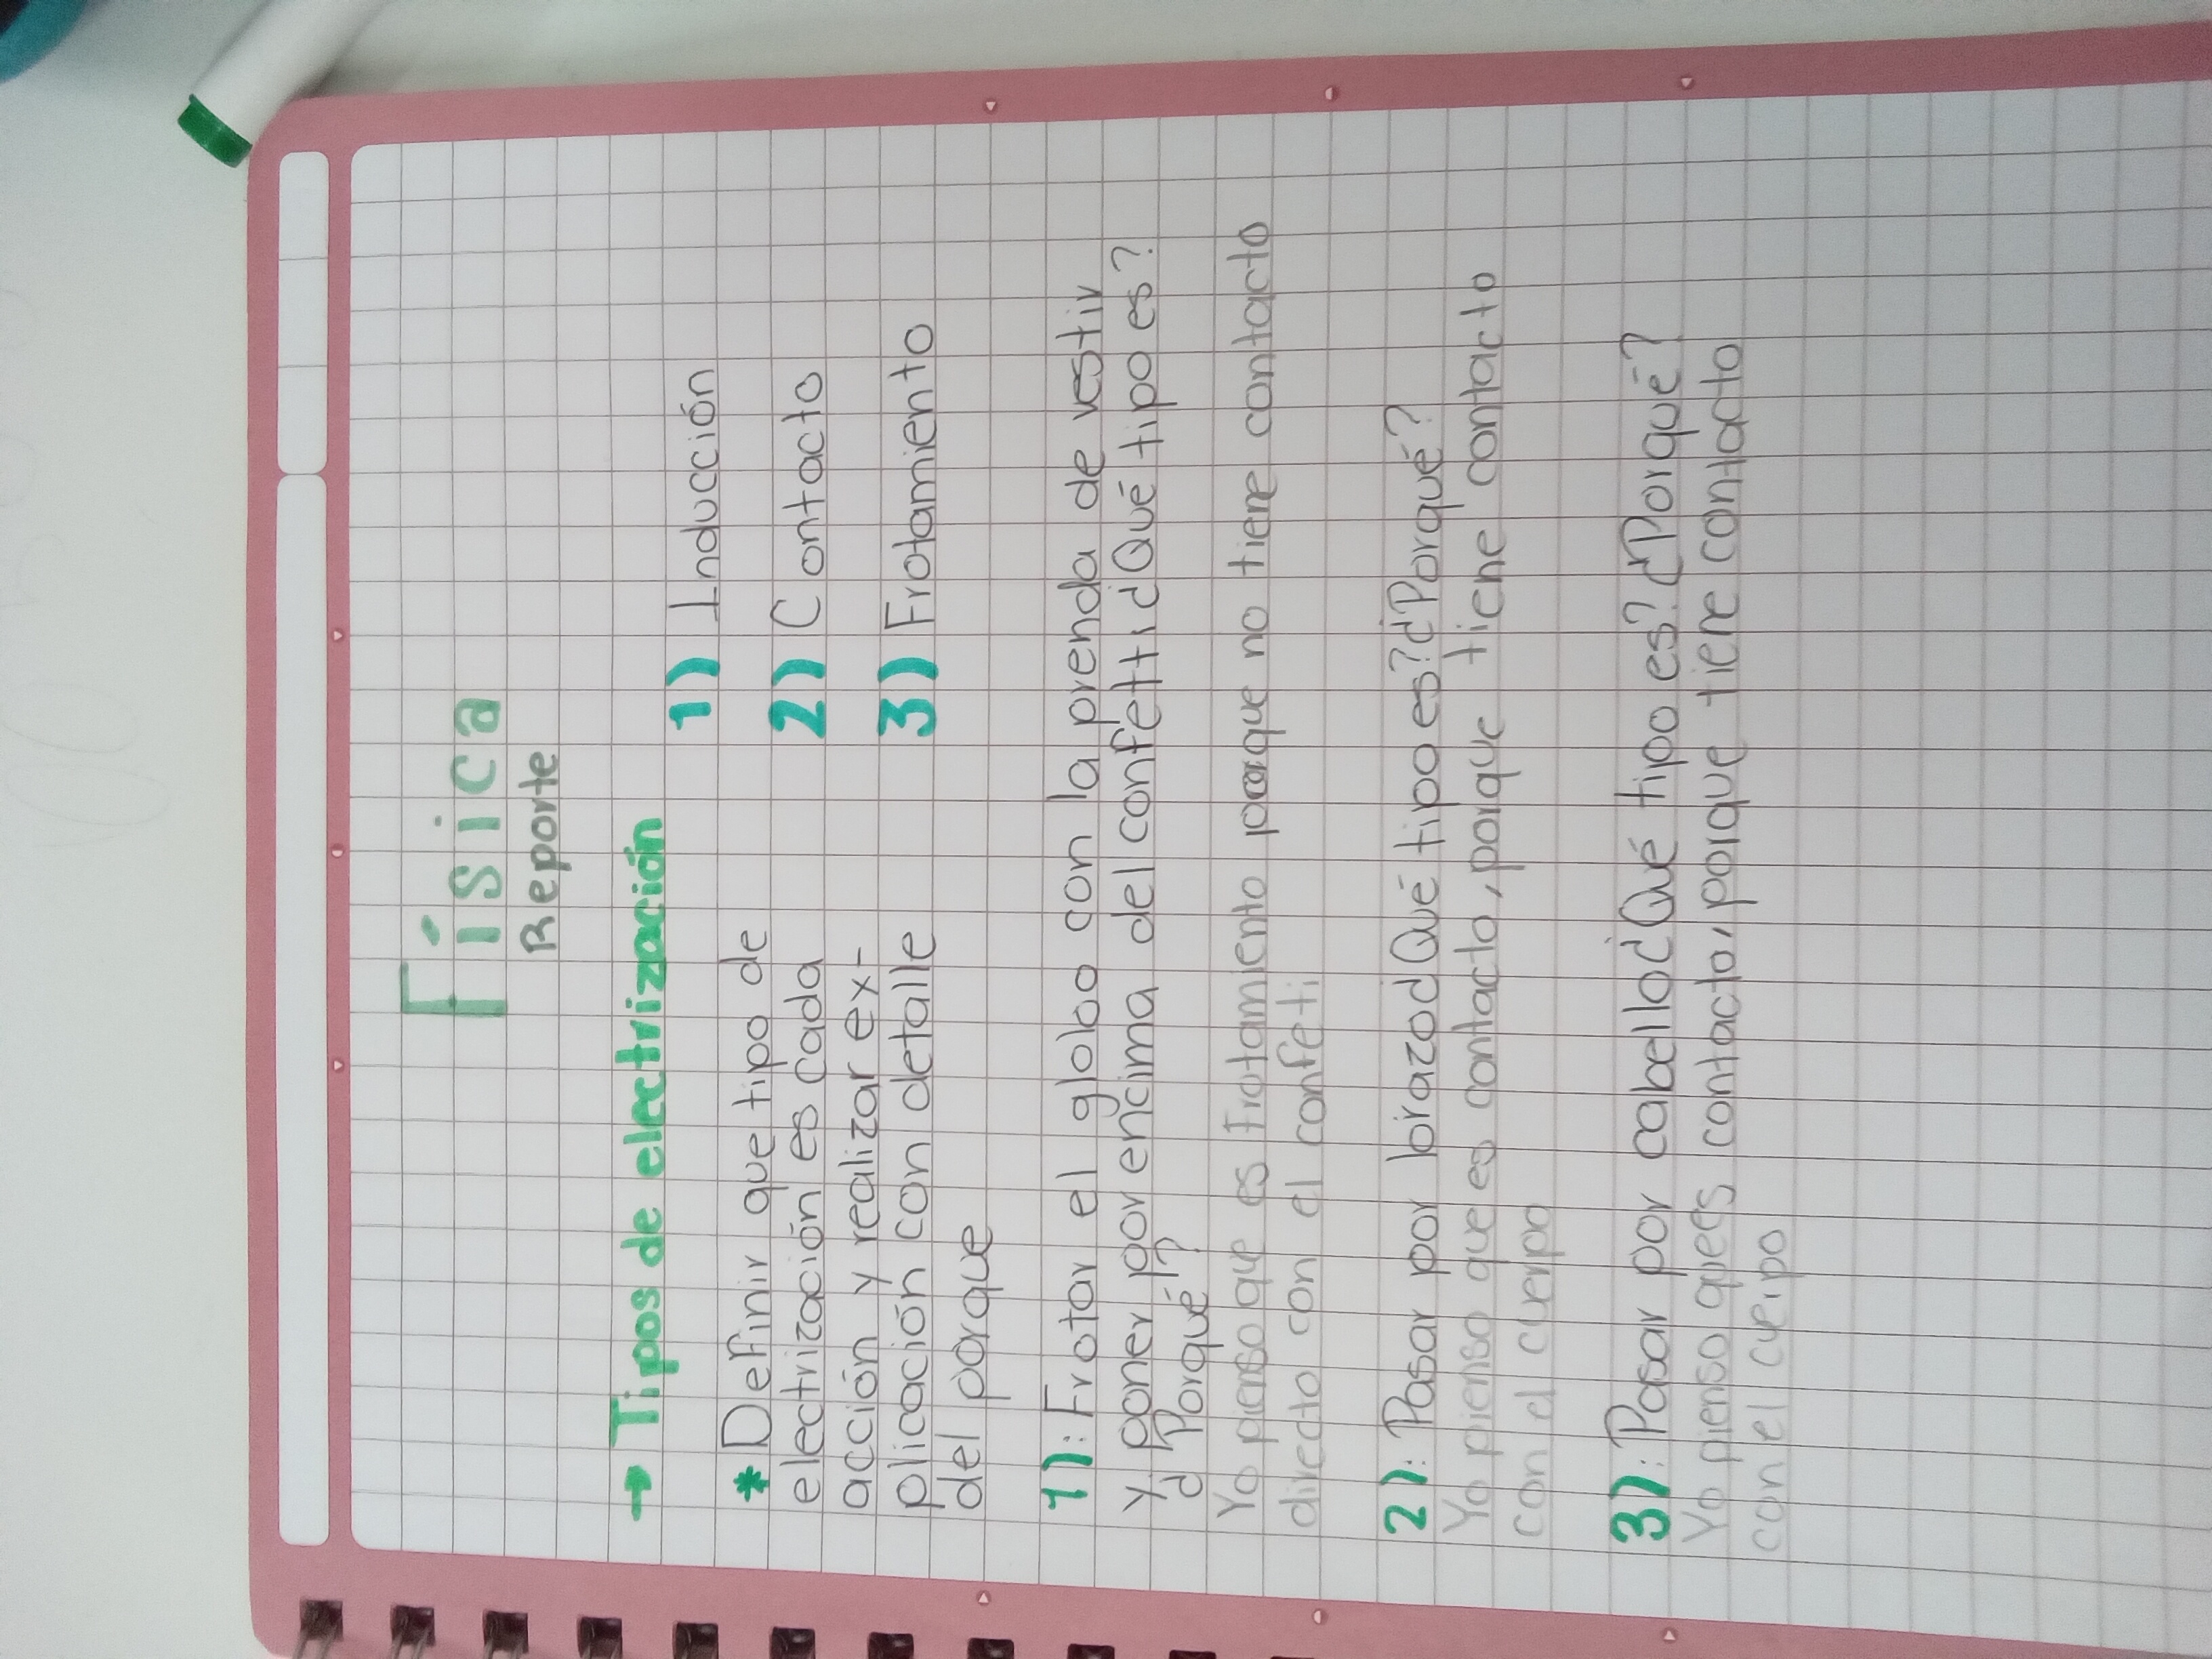 Física
Reporte
→ Tipos de electrización
* Definir que tipo de
electrización es cada
acción y realizar ex-
plicación con detalle
del porque
1) Inducción
2) Contacto
3) Frotamiento
1): Frotar el globo con la prenda de vestir
y poner por encima del confetti ¿Qué tipo es?
¿Porqué?
Yo pienso que es frotamiento porque no tiene contacto
directo con el confeti
2): Pasar por brazo ¿Qué tipo es? ¿Porqué?
Yo pienso que es contacto, porque tiene contacto
con el cuerpo
3): Pasar por cabello ¿Qué tipo es? ¿Porqué?
Yo pienso que es contacto, porque tiene contacto
con el cuerpo